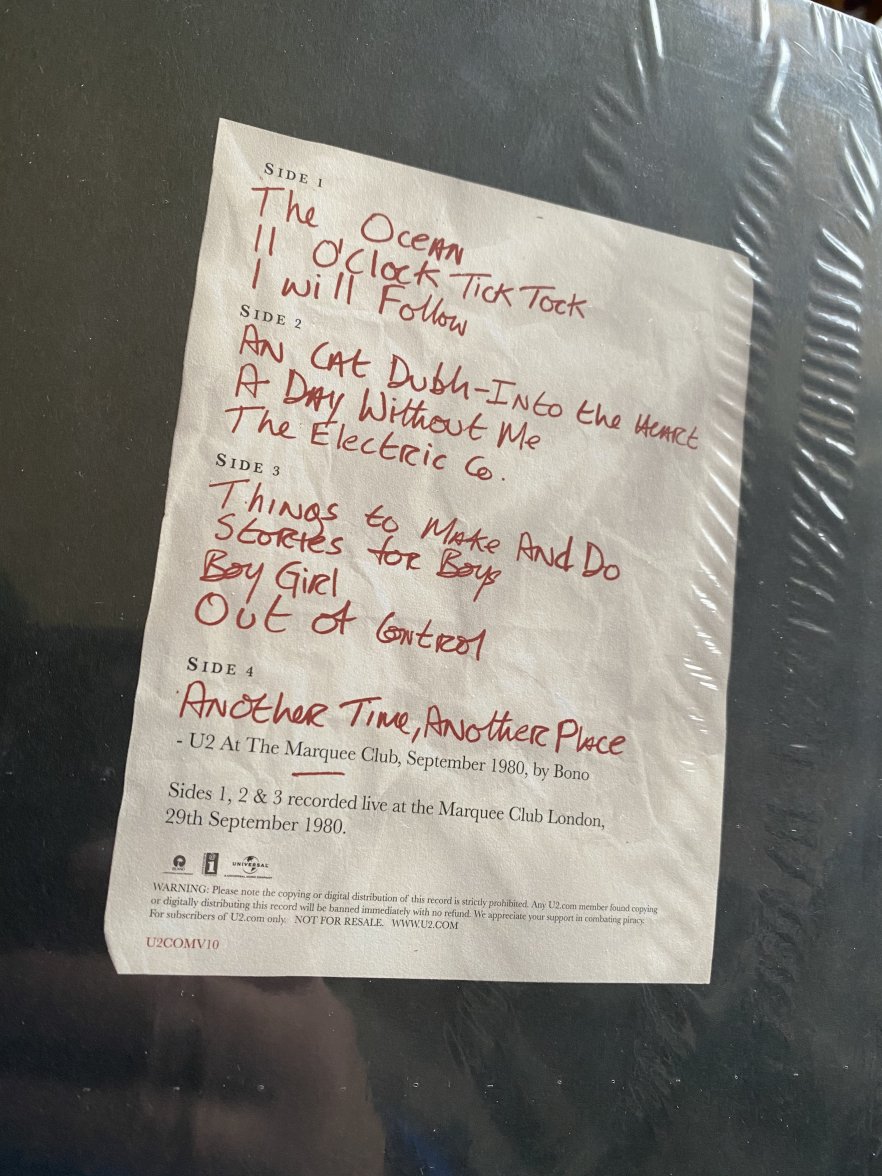 SIDE 1
The Ocean
11 O'Clock Tick Tock
I will Follow
SIDE 2
An Cat Dubh-Into the Heart
A Day Without Me
The Electric Co.
SIDE 3
Things to Make And Do
Stories for Boys
Boy Girl
Out of Control
SIDE 4
Another Time, Another Place
- U2 At The Marquee Club, September 1980, by Bono
Sides 1, 2 & 3 recorded live at the Marquee Club London,
29th September 1980.
ISLAND
UNIVERSAL
A UNIVERSAL MUSIC COMPANY
WARNING: Please note the copying or digital distribution of this record is strictly prohibited. Any U2.com member found copying
or digitally distributing this record will be banned immediately with no refund. We appreciate your support in combating piracy.
For subscribers of U2.com only. NOT FOR RESALE. WWW.U2.COM
U2COMV10